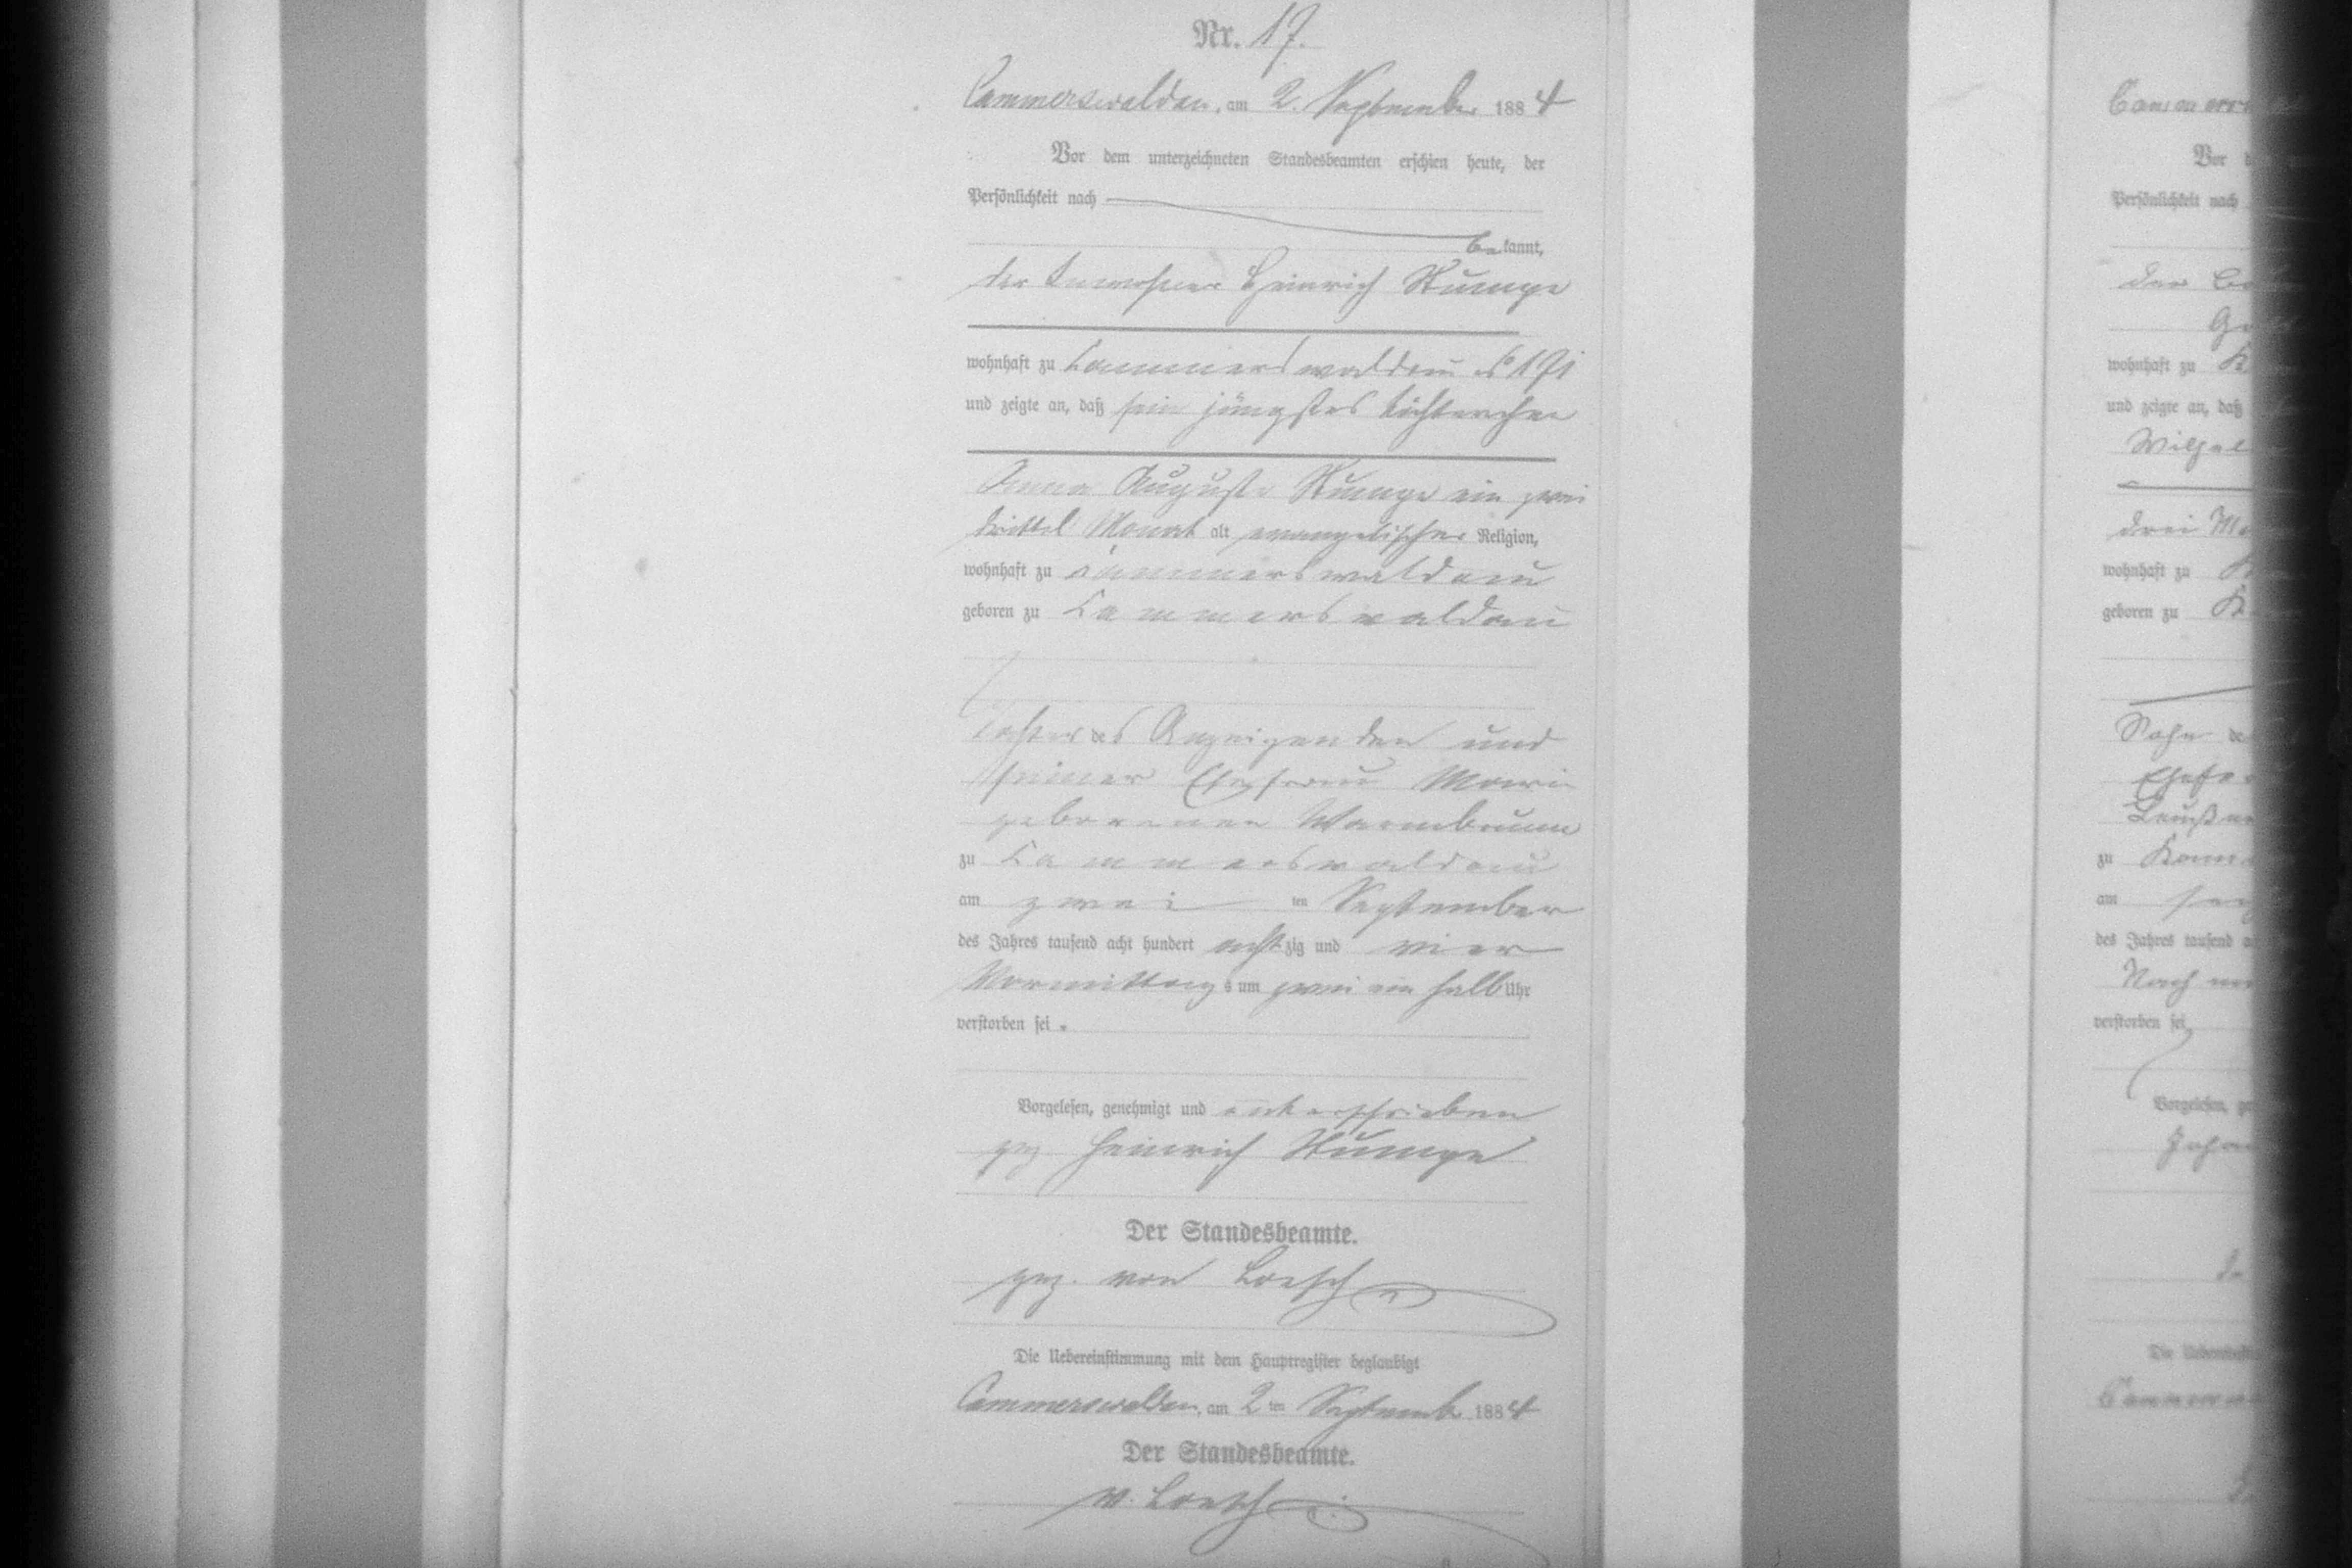 Nr. 17.
Cammerswaldau, am 2. September 1884
Vor dem unterzeichneten Standesbeamten erschien heute, der
Persönlichkeit nach
bekannt,
der Inwohner Heinrich Stumpe
wohnhaft zu Cammerswaldau No 191
und zeigte an, daß sein jüngstes Töchterchen
Anna Auguste Stumpe ein zwei
drittel Monat alt evangelischer Religion,
wohnhaft zu Cammerswaldau
geboren zu Cammerswaldau
Tochter des Anzeigenden und
seiner Ehefrau Marie
geborenen Warmbrunn
zu Cammerswaldau
am zwei ten September
des Jahres tausend acht hundert achtzig und vier
Vormittags um zwei ein halb Uhr
verstorben sei.
Vorgelesen, genehmigt und unterschrieben
gez Heinrich Stumpe
Der Standesbeamte.
gez. von Loesch
Die Uebereinstimmung mit dem Hauptregister beglaubigt
Cammerswaldau, am 2ten September 1884
Der Standesbeamte.
v. Loesch
Vor
Persönlichkeit nach
der
wohnhaft zu
und zeigte an, daß
drei
wohnhaft zu
geboren zu
Sohn
zu
am
des Jahres tausend
verstorben sei,
Vorgelesen,
Die